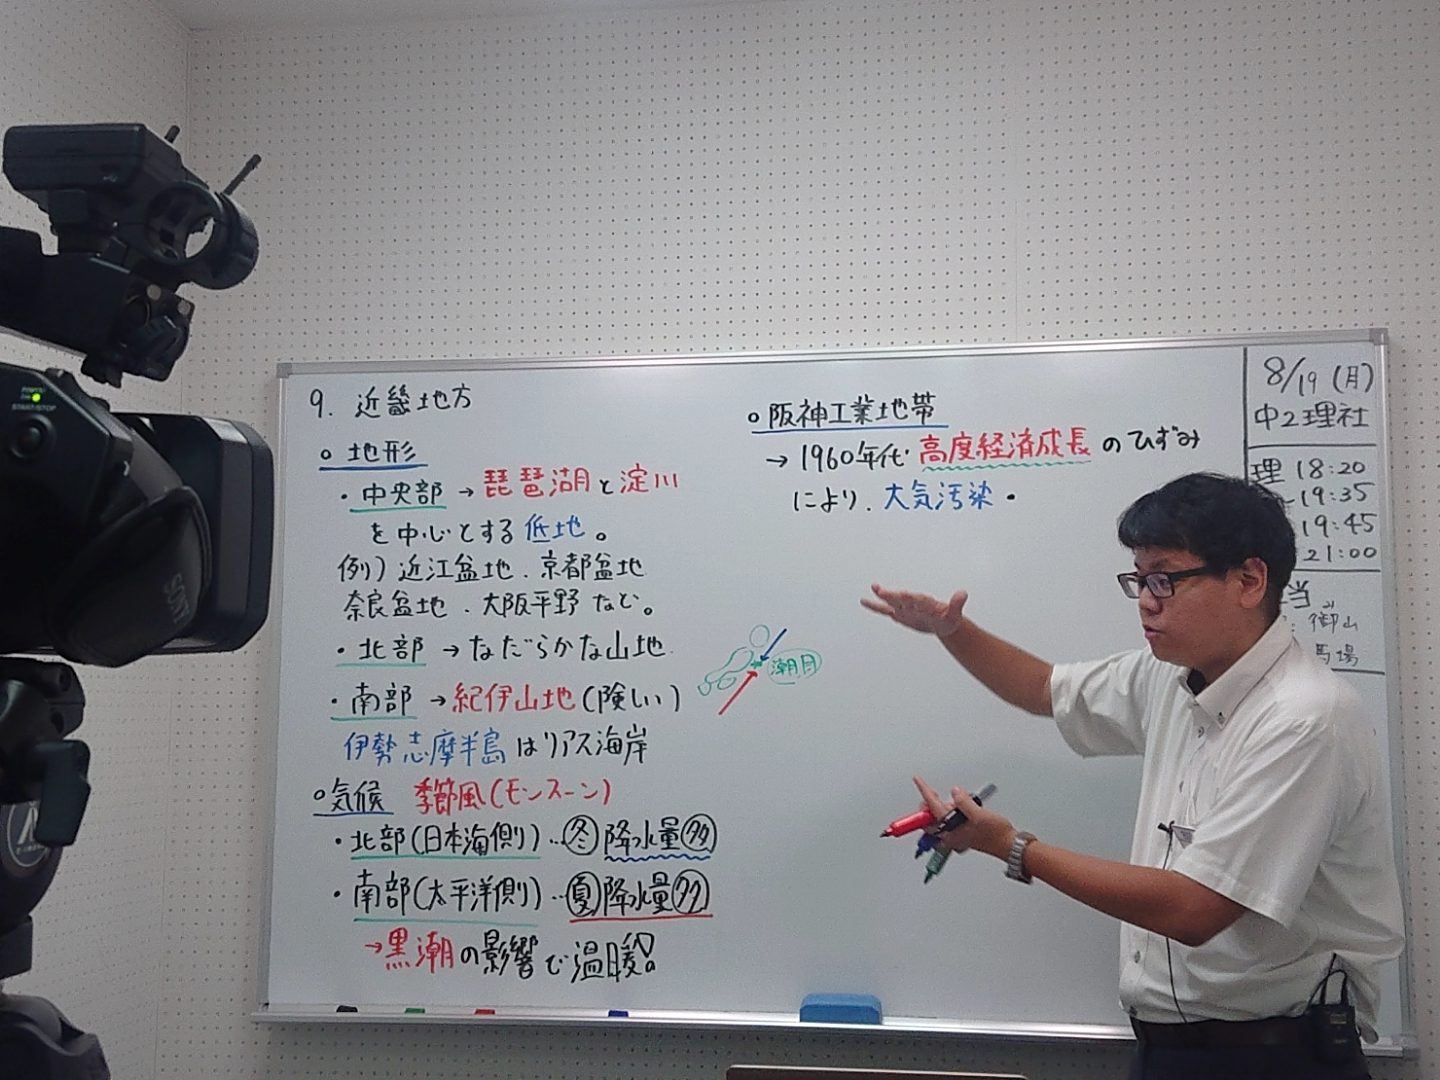 9. 近畿地方
○ 地形
・中央部 → 琵琶湖と淀川
を中心とする低地。
例) 近江盆地、京都盆地
奈良盆地、大阪平野 など。
・北部 → なだらかな山地
・南部 → 紀伊山地(険しい)
伊勢志摩半島はリアス海岸
○気候 季節風(モンスーン)
・北部(日本海側)…冬 降水量多
・南部(太平洋側)…夏 降水量多
→黒潮の影響で温暖。
潮目
○阪神工業地帯
→ 1960年代 高度経済成長のひずみ
により、大気汚染・
8/19 (月)
中2理社
理 18:20
19:35
19:45
21:00
当
み
御山
馬場
SONY
START/STOP